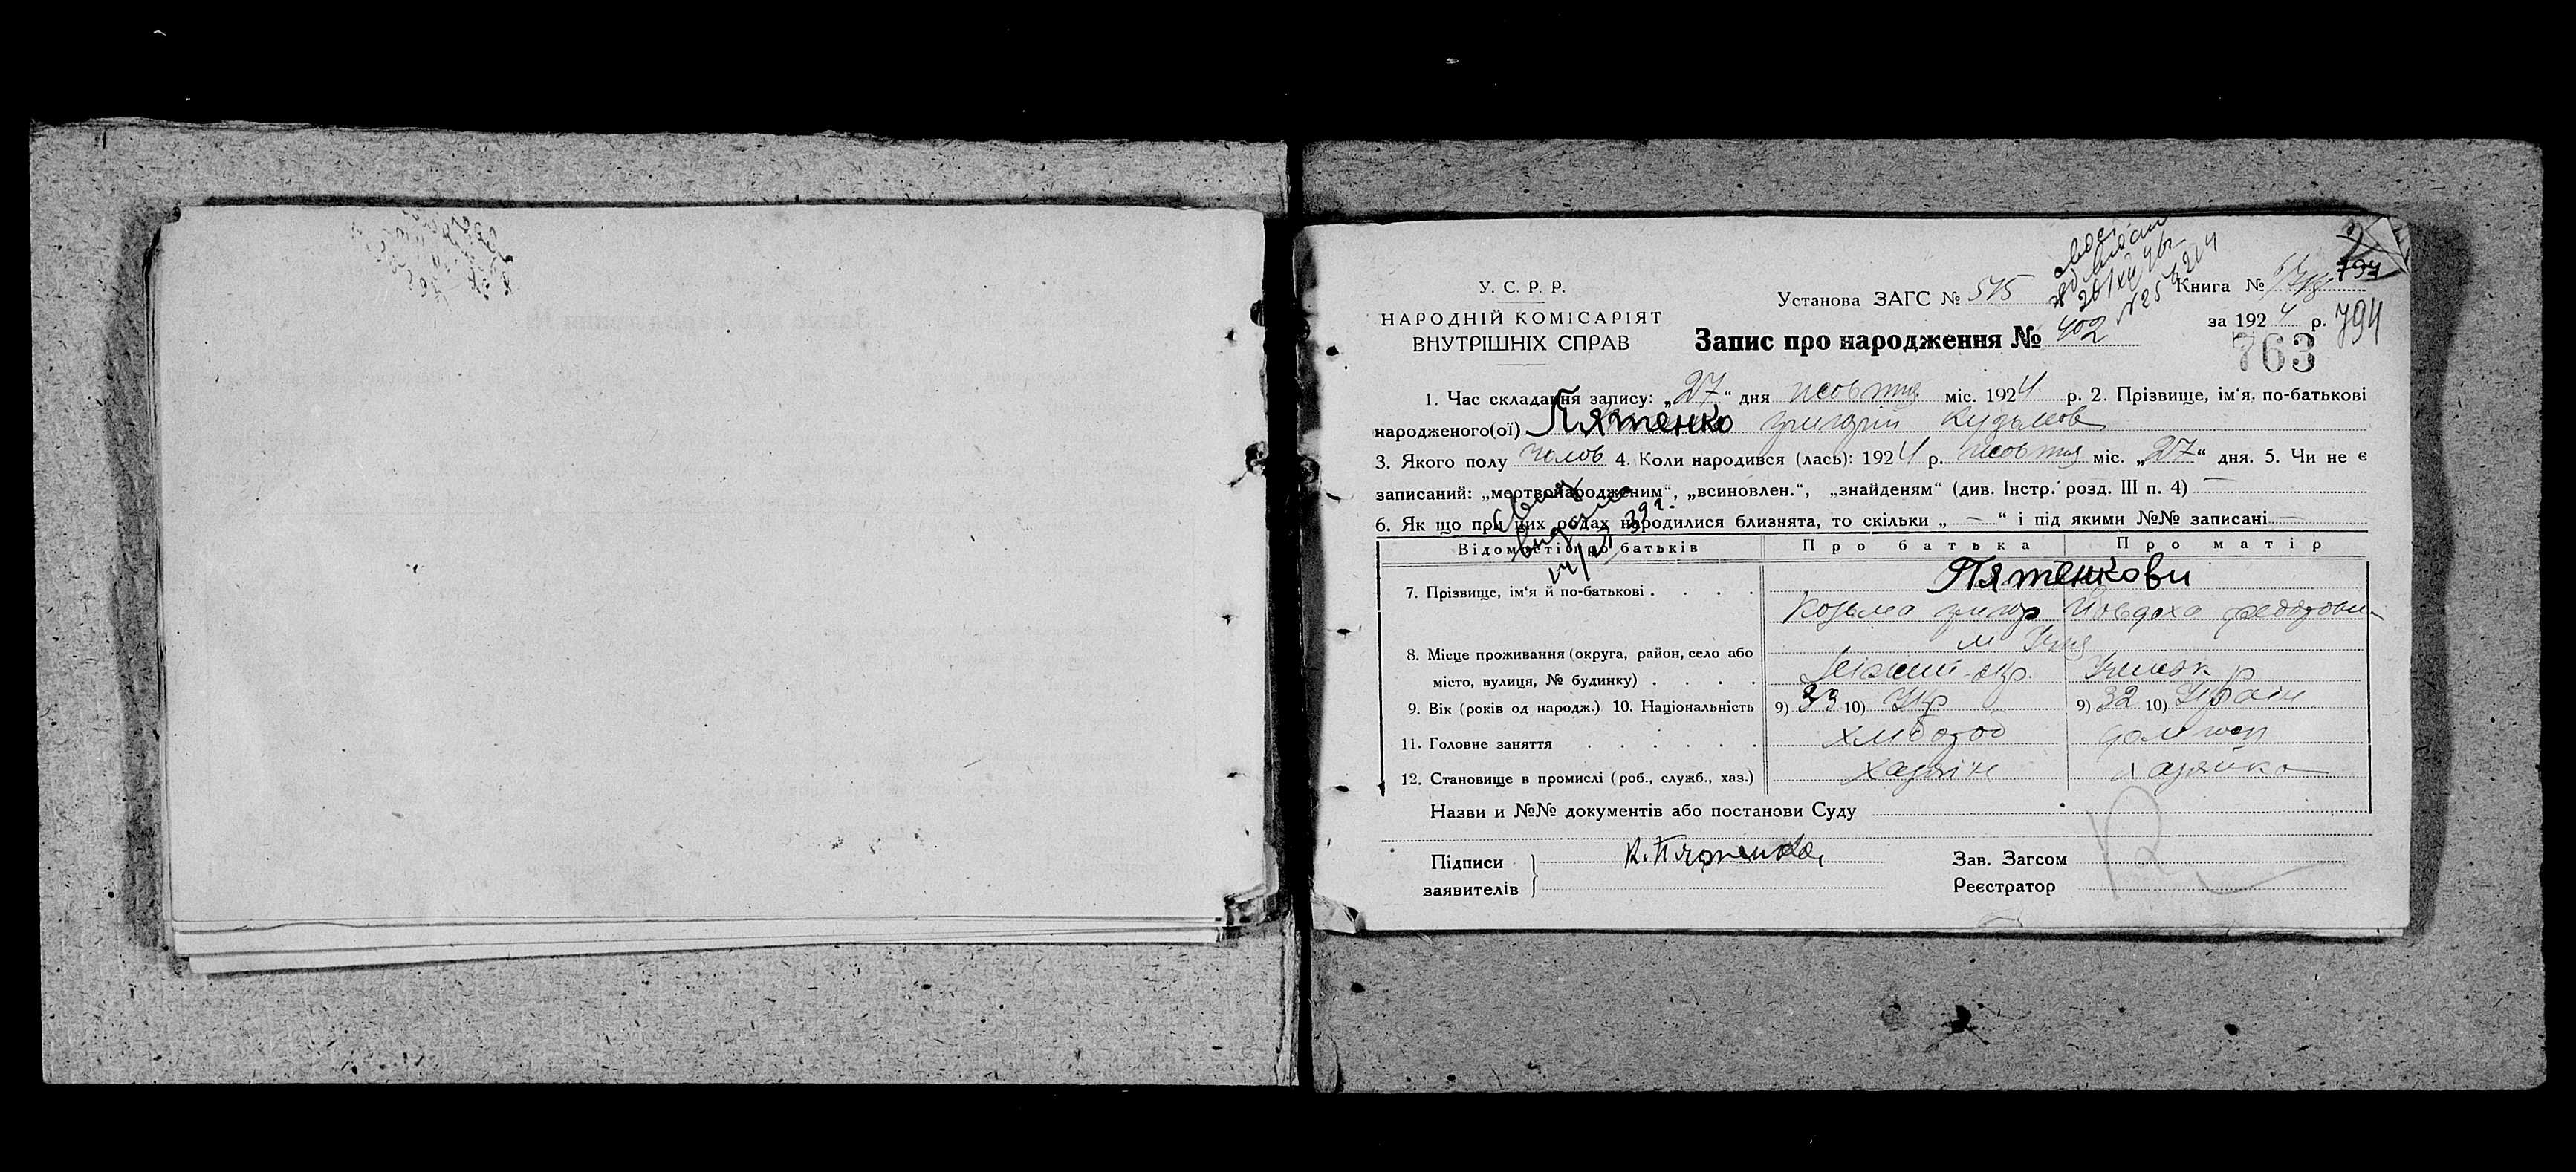 У. С. Р. Р.
НАРОДНІЙ КОМІСАРІЯТ
ВНУТРІШНІХ СПРАВ
Установа ЗАГС № 575
Книга №
797
Запис про народження № 402
за 1924 р. 794
763
1. Час складання запису: „27“ дня жовтня міс. 1924 р. 2. Прізвище, ім'я, по-батькові
народженого(ої) Пятенко Григорій Кузьмов
3. Якого полу чолов 4. Коли народився (лась): 1924 р. жовтня міс. „27“ дня. 5. Чи не є
записаний: „мертвонародженим“, „всиновлен.“, „знайденям“ (див. Інстр. розд. III п. 4) —
6. Як що при цих родах народилися близнята, то скільки „ — “ і під якими №№ записані —
Відомості про батьків Про батька Про матір
7. Прізвище, ім'я й по-батькові . . . . Пятенкови
Козьма Григор Йовдоха
8. Місце проживання (округа, район, село або
місто, вулиця, № будинку) . . . .
9. Вік (років од народж.) 10. Національність 9) 33 10) Укр 9) 32 10) Україн
11. Головне заняття . . . . . . хлібороб дом госп
12. Становище в промислі (роб., служб., хаз.) хазяїн хазяйка
Назви и №№ документів або постанови Суду
Підписи К. Пятенко
заявителів
Зав. Загсом
Реєстратор